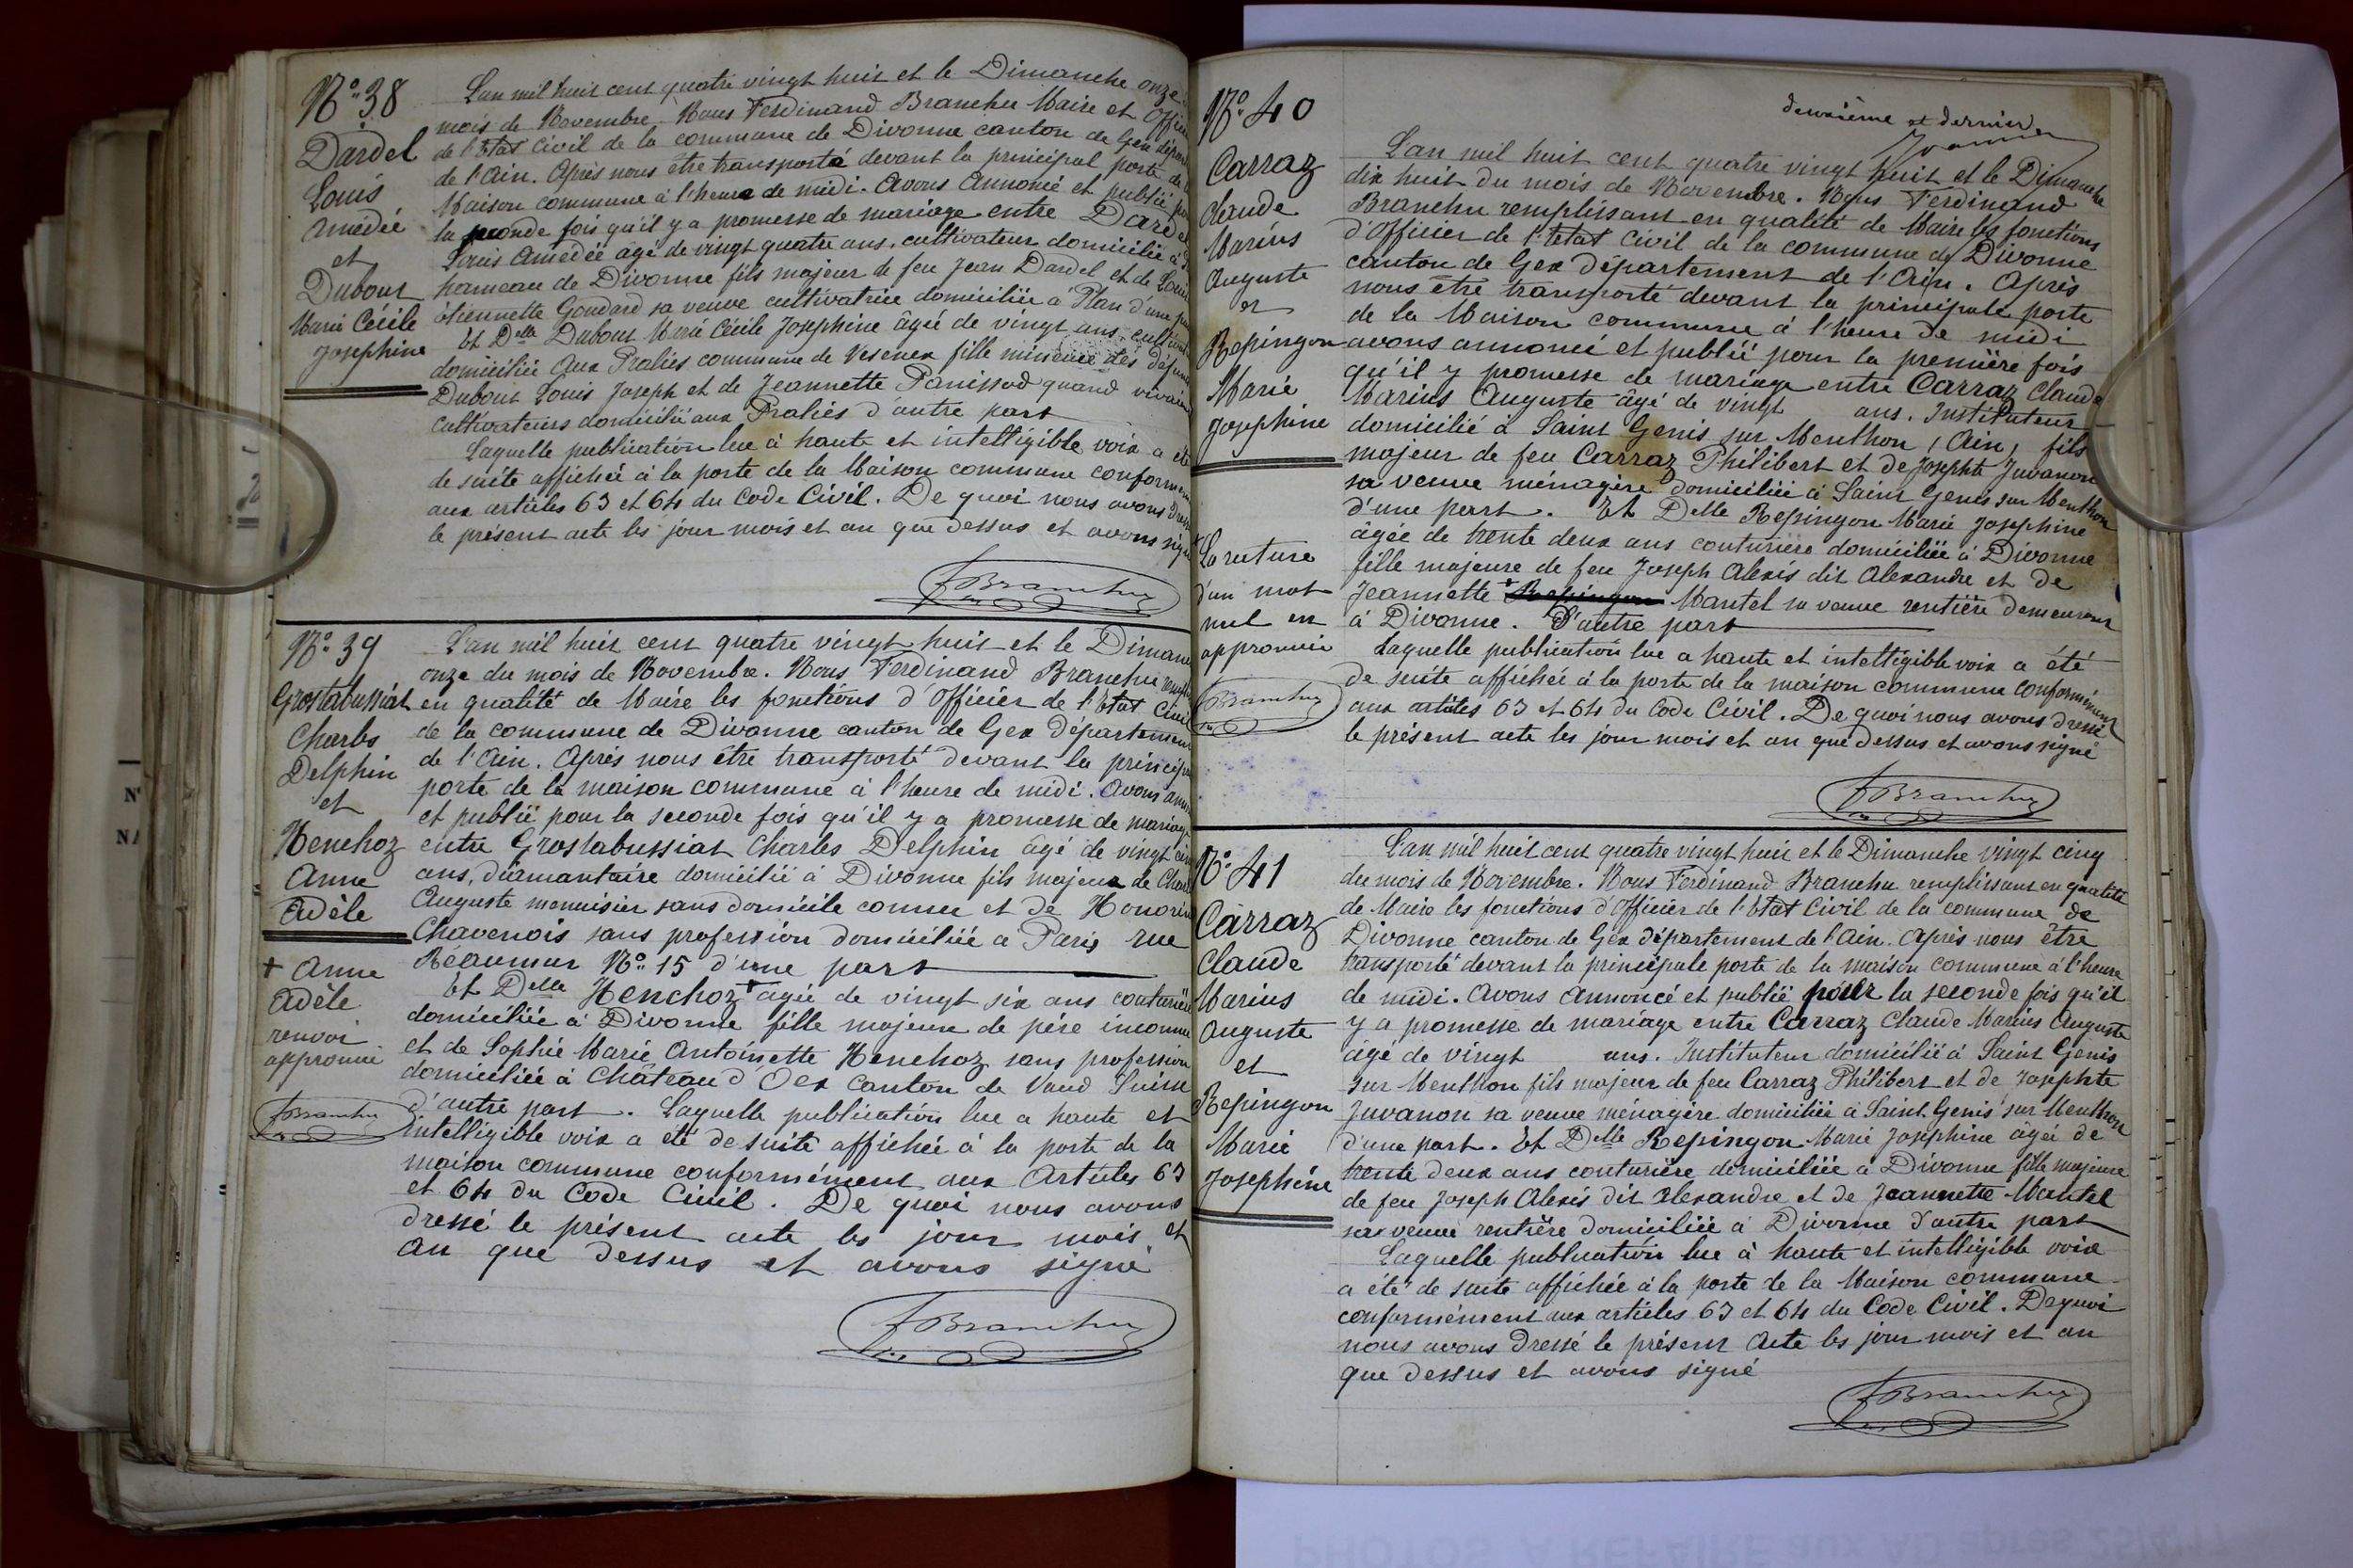 N° 38
Dardel
Louis
Amédée
et
Dubout
Marie Cécile
Josephine
L'an mil huit cent quatre vingt huit et le Dimanche onze
mois de Novembre. Nous Ferdinand Branchu Maire et
de l'Etat Civil de la commune de Divonne canton de Gex
de l'Ain. Après nous être transporté devant la principal porte de
Maison commune à l'heure de midi. Avons Annoncé et publié
la seconde fois qu'il y a promesse de mariage entre Dardel
Louis Amédée âgé de vingt quatre ans, cultivateur domicilié à
hameau de Divonne fils majeur de feu Jean Dardel et de
étiennette Goudard sa veuve cultivatrice domiciliée à Plan d'une
Et Delle Dubout Marie Cécile Josephine âgée de vingt ans
domiciliée aux Pralies commune de Vesenex fille mineure des
Dubout Louis Joseph et de Jeannette Panissod quand
cultivateurs domicilié aux Pralies d'autre part
Laquelle publication lue à haute et intelligible voix a été
de suite affichée à la porte de la Maison commune
aux articles 63 et 64 du Code Civil. De quoi nous avons
le présent acte les jour mois et an que dessus et avons
FBranchu
N° 39
Grostabussiat
Charles
Delphin
et
Henchoz
Anne
Adèle
+ Anne
Adèle
renvoi
approuvé
FBranchu
L'an mil huit cent quatre vingt huit et le
onze du mois de Novembre. Nous Ferdinand Branchu
en qualité de Maire les fonctions d'Officier de l'Etat Civil
de la commune de Divonne canton de Gex
de l'Ain. Après nous être transporté devant la
porte de la maison commune à l'heure de midi. Avons
et publié pour la seconde fois qu'il y a promesse de
entre Grostabussiat Charles Delphin âgé de vingt
ans, diamantaire domicilié à Divonne fils majeur de
Auguste menuisier sans domicile connu et de
Chavenois sans profession domiciliée à Paris rue
Réaumur N° 15 d'une part
Et Delle Henchoz + âgée de vingt six ans couturière
domiciliée à Divonne fille majeure de père inconnu
et de Sophie Marie Antoinette Henchoz sans profession
domiciliée à Château d'Oex Canton de Vaud Suisse
d'autre part. Laquelle publication lue a haute et
intelligible voix a été de suite affichée à la porte de la
maison commune conformément aux Articles 63
et 64 du Code Civil. De quoi nous avons
dressé le présent acte les jour mois et
an que dessus et avons signé
FBranchu
deuxième et dernier
N° 40
Carraz
Claude
Marius
Auguste
et
Repingon
Marie
Josephine
La rature
d'un mot
nul est
approuvée
FBranchu
L'an mil huit cent quatre vingt huit et le Dimanche
dix huit du mois de Novembre. Nous Ferdinand
Branchu remplissant en qualité de Maire les fonctions
d'Officier de l'Etat Civil de la commune de Divonne
canton de Gex Département de l'Ain. Après
nous être transporté devant la principale porte
de la Maison commune à l'heure de midi
avons annoncé et publié pour la première fois
qu'il y promesse de mariage entre Carraz Claude
Marius Auguste âgé de vingt ans. Instituteur
domicilié à Saint Genis sur Menthon (Ain) fils
majeur de feu Carraz Philibert et de Josephte Juvanon
sa veuve ménagère domiciliée à Saint Genis sur Menthon
d'une part. Et Delle Repingon Marie Josephine
âgée de trente deux ans couturière domiciliée à Divonne
fille majeure de feu Joseph Alexis dit Alexandre et de
Jeannette + Repingon Mantel sa veuve rentière demeurant
à Divonne. D'autre part
Laquelle publication lue a haute et intelligible voix a été
de suite affichée à la porte de la maison commune conformément
aux articles 63 et 64 du Code Civil. De quoi nous avons dressé
le présent acte les jour mois et an que dessus et avons signé
FBranchu
N° 41
Carraz
Claude
Marius
Auguste
et
Repingon
Marie
Josephine
L'an mil huit cent quatre vingt huit et le Dimanche vingt cinq
du mois de Novembre. Nous Ferdinand Branchu remplissant en qualité
de Maire les fonctions d'Officier de l'Etat Civil de la commune de
Divonne canton de Gex département de l'Ain. Après nous être
transporté devant la principale porte de la maison commune à l'heure
de midi. Avons Annoncé et publié pour la seconde fois qu'il
y a promesse de mariage entre Carraz Claude Marius Auguste
âgé de vingt ans. Instituteur domicilié à Saint Genis
sur Menthon fils majeur de feu Carraz Philibert et de Josephte
Juvanon sa veuve ménagère domiciliée à Saint Genis sur Menthon
d'une part. Et Delle Repingon Marie Josephine âgée de
trente deux ans couturière domiciliée à Divonne fille majeure
de feu Joseph Alexis dit Alexandre et de Jeannette Mantel
sa veuve rentière domiciliée à Divonne d'autre part
Laquelle publication lue à haute et intelligible voix
a été de suite affichée à la porte de la Maison commune
conformément aux articles 63 et 64 du Code Civil. De quoi
nous avons dressé le présent Acte les jour mois et an
que dessus et avons signé
FBranchu